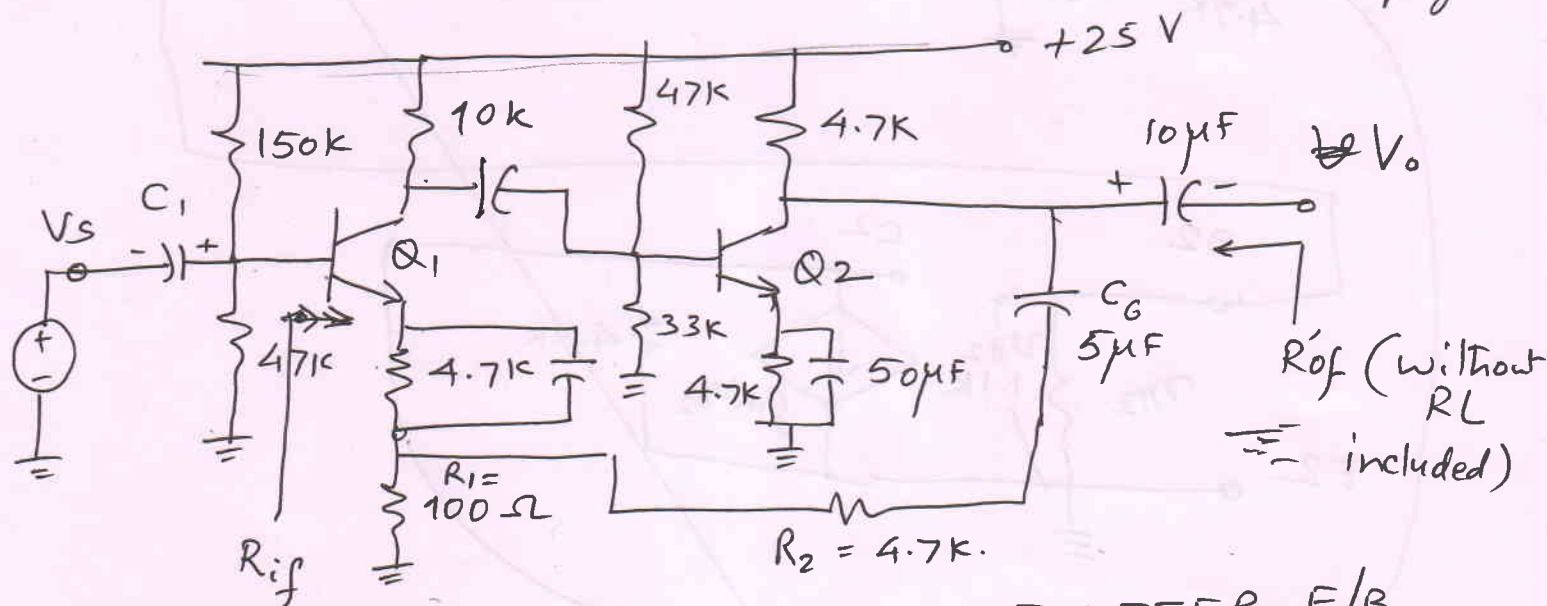 +25 V
150K
10K
47K
4.7K
10μF
Vo
+ -
C1
Vs
- +
Q1
Q2
47K
4.7K
33K
4.7K
50μF
C6
5μF
R'of (without
RL
included)
+
-
R1=
100 Ω
R2 = 4.7K.
Rif
F/B